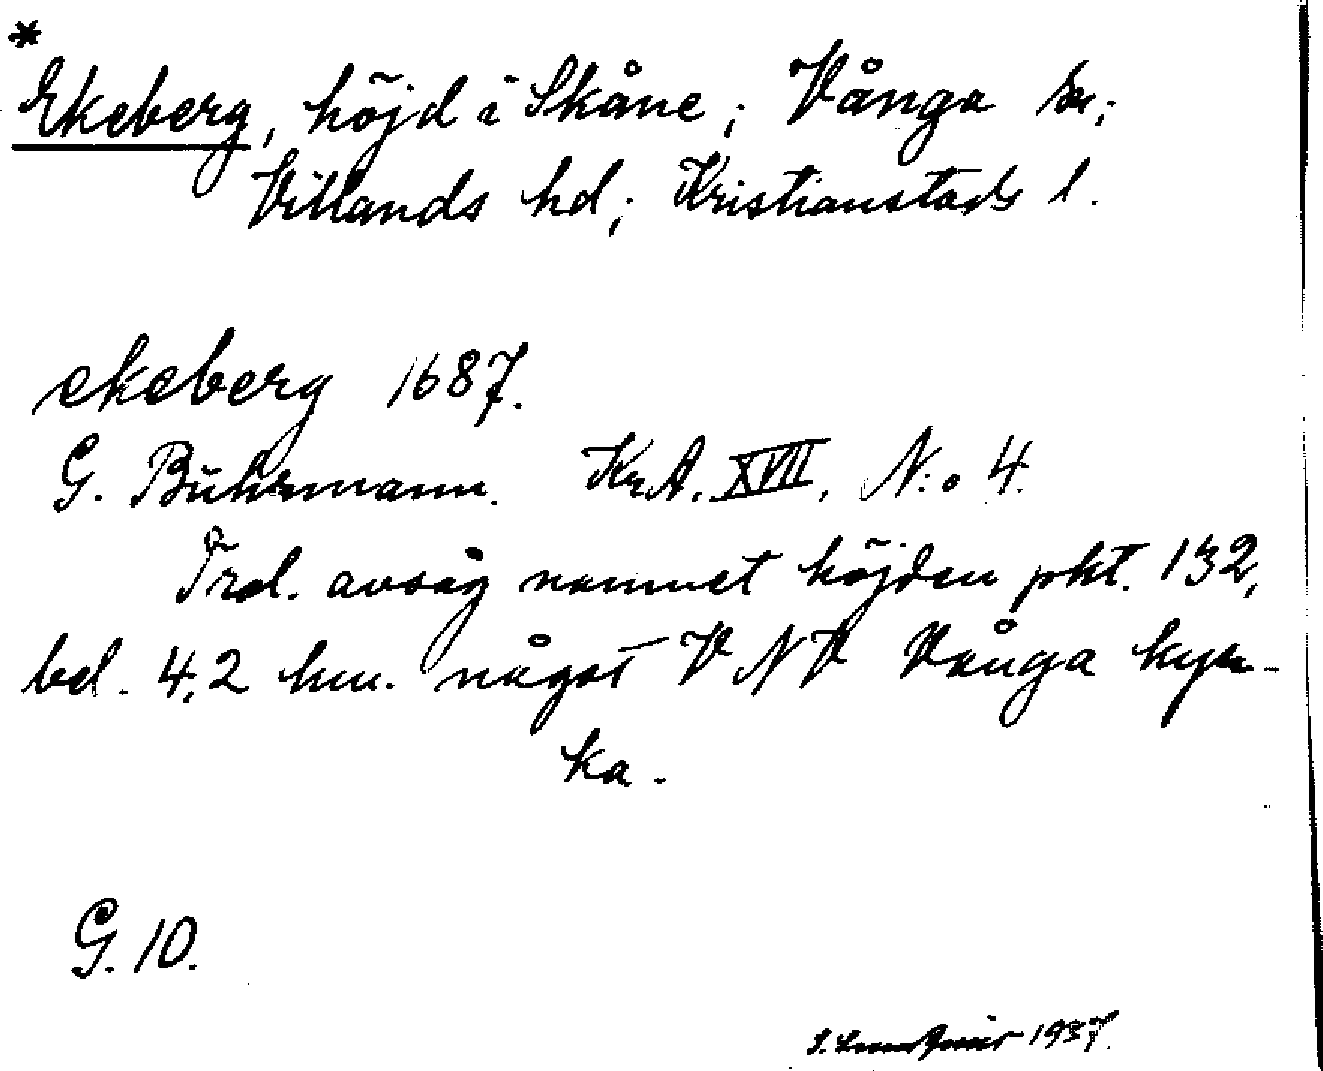 *
Ekeberg, höjd i Skåne; Vånga sn;
Villands hd; Kristianstads l.
ekeberg 1687.
G. Bührmann. Kr.A. XVII, N:o 4.
Trol. avsåg namnet höjden pkt. 132,
bel. 4,2 km. något VNV Vånga kyr-
ka.
G. 10.
1937.